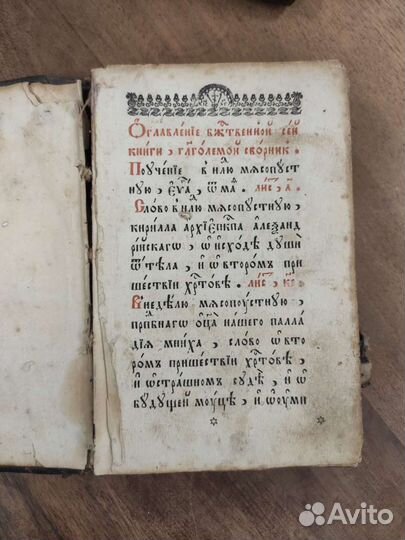 Ѻглавленїе бж҃твенной се́й
книги , гл҃големой сборник .
Поучєнїе в нлю мѧсопуст
ную , єѵⷢ҇а , ѿ маⷴ . лисⷮ , а҃ .
Слово в нлю мѧсопустную ,
кирилла архїєпкпа алеѯанд
рїйскагѡ , ѡ исходѣ души
ѿ тѣла , и ѡ второмъ при
шествїи хрⷭ҇товѣ . лисⷮ ,
В неделю мѧсопустную ,
прпбнагѡ ѻц҃а нашего палла
дїѧ мниха , слово ѡ вто
ромъ пришествїи хрⷭ҇товѣ ,
и ѡ страшномъ судѣ , и ѡ
будущей моуцѣ , и ѡ оуми
Avito